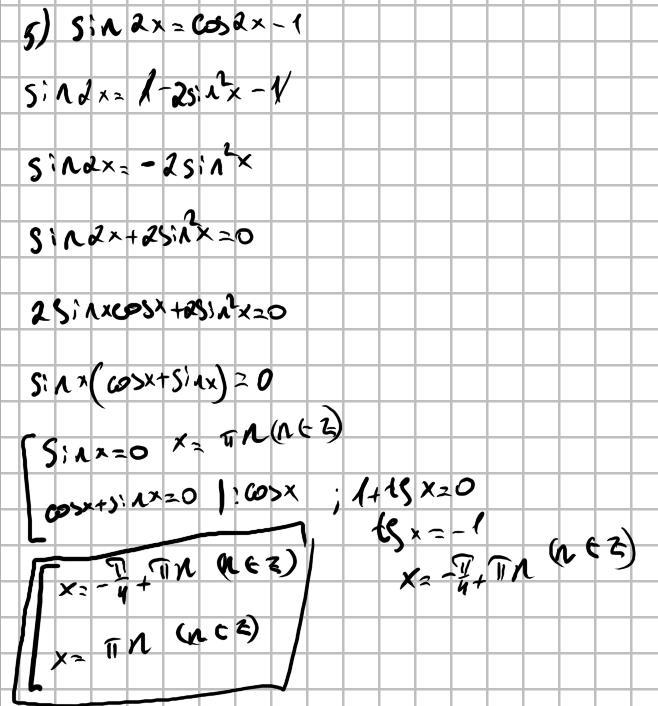 5) sin 2x = cos2x - 1
sin2x = 1 - 2sin²x - 1
sin2x = - 2 sin²x
sin2x + 2sin²x = 0
2 sinxcosx + 2sin²x = 0
sinx(cosx + sinx) = 0
sinx = 0 x = πn (n ∈ Z)
cosx + sinx = 0 |: cosx ; 1 + tg x = 0
tg x = -1
x = -π/4 + πn (n ∈ Z)
x = -π/4 + πn (n ∈ Z)
x = πn (n ∈ Z)